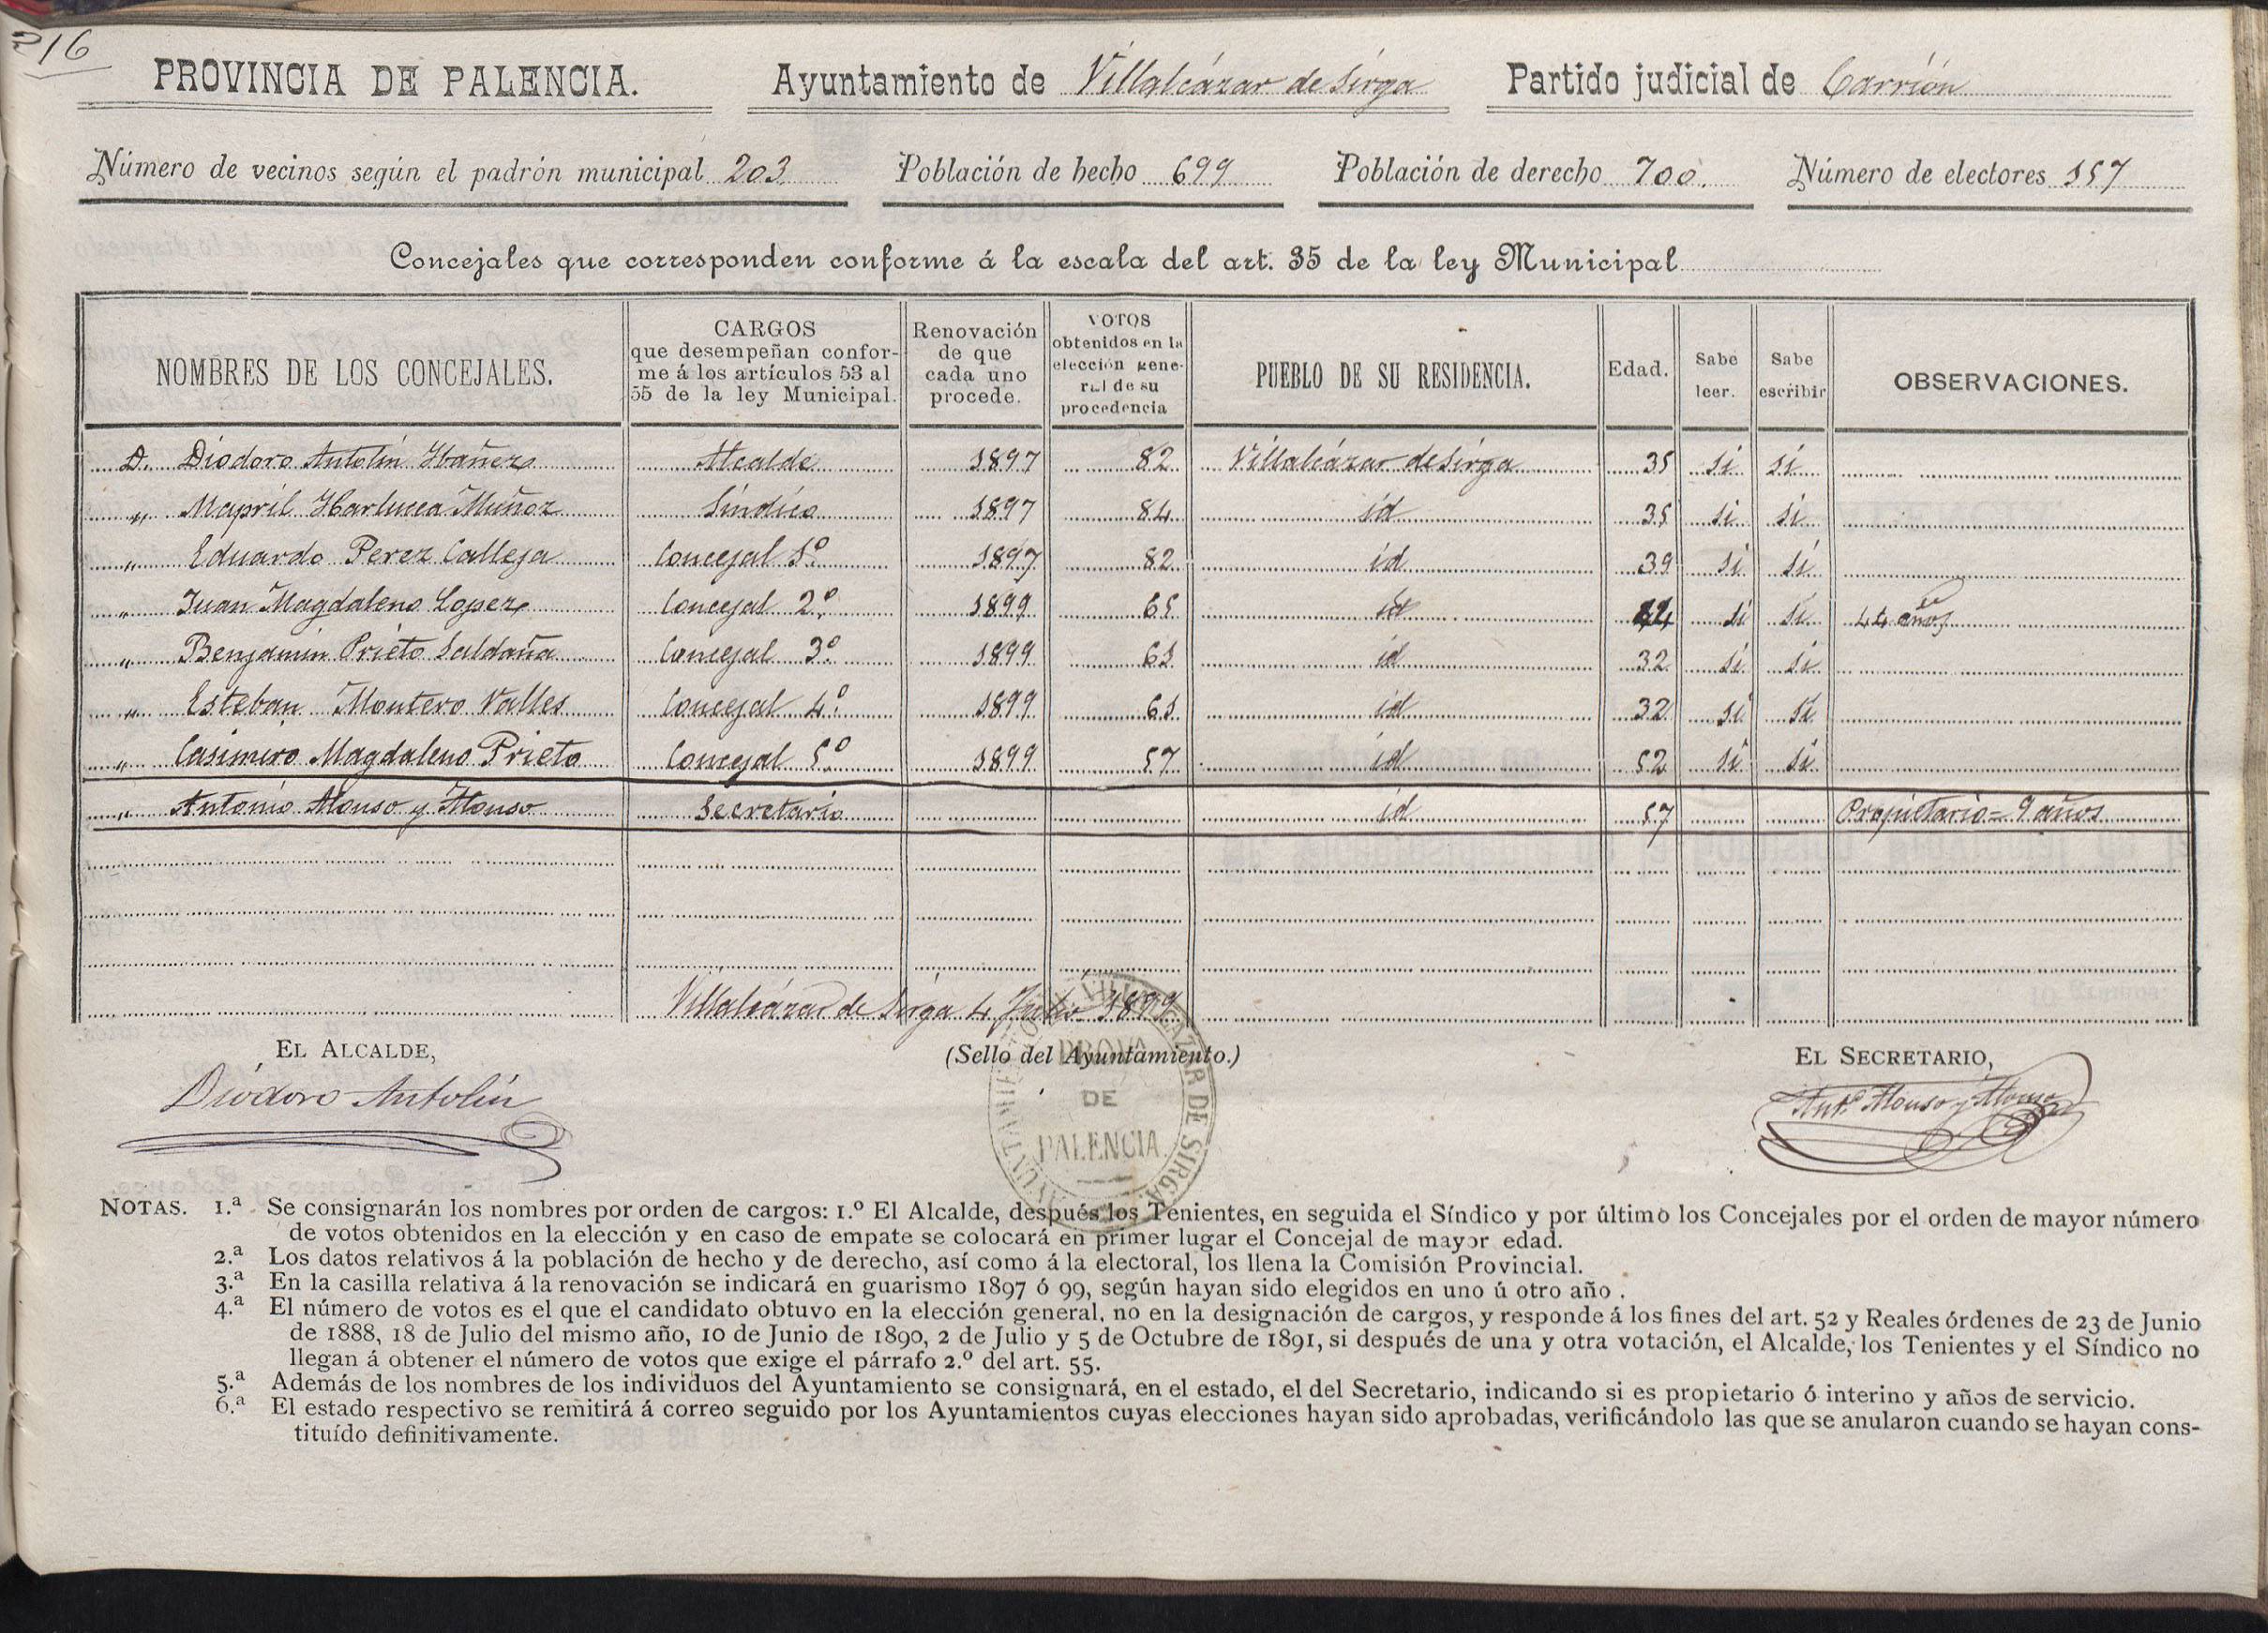 216
PROVINCIA DE PALENCIA. Ayuntamiento de Villalcázar de Sirga Partido judicial de Carrión
Número de vecinos según el padrón municipal 203. Población de hecho 699 Población de derecho 700. Número de electores 157
Concejales que corresponden conforme á la escala del art. 35 de la ley Municipal
NOMBRES DE LOS CONCEJALES. CARGOS que desempeñan conforme á los artículos 53 al 55 de la ley Municipal. Renovación de que cada uno procede. VOTOS obtenidos en la elección general de su procedencia PUEBLO DE SU RESIDENCIA. Edad. Sabe leer. Sabe escribir OBSERVACIONES.
D. Diodoro Antolín Ibañez Alcalde 1897 82 Villalcázar de Sirga 35 si si
" Muñoz Síndico 1897 84 id 35 si si
" Eduardo Perez Calleja Concejal 1º 1897 82 id 39 si si
" Juan Magdaleno Lopez Concejal 2º 1899 65 id 44 si si 44 años
" Benjamin Prieto Saldaña Concejal 3º 1899 61 id 32 si si
" Esteban Montero Valles Concejal 4º 1899 61 id 32 si si
" Casimiro Magdaleno Prieto Concejal 5º 1899 57 id 52 si si
" Antonio Alonso y Alonso Secretario id 57 Propietario = 9 años
Villalcázar de Sirga 4 Julio 1899
EL ALCALDE, (Sello del Ayuntamiento.) EL SECRETARIO,
Diodoro Antolín Antº Alonso y Alonso
AYUNTAMIENTO DE VILLALCAZAR DE SIRGA
PROVA
DE
PALENCIA
NOTAS. 1.ª Se consignarán los nombres por orden de cargos: 1.º El Alcalde, después los Tenientes, en seguida el Síndico y por último los Concejales por el orden de mayor número
de votos obtenidos en la elección y en caso de empate se colocará en primer lugar el Concejal de mayor edad.
2.ª Los datos relativos á la población de hecho y de derecho, así como á la electoral, los llena la Comisión Provincial.
3.ª En la casilla relativa á la renovación se indicará en guarismo 1897 ó 99, según hayan sido elegidos en uno ú otro año .
4.ª El número de votos es el que el candidato obtuvo en la elección general, no en la designación de cargos, y responde á los fines del art. 52 y Reales órdenes de 23 de Junio
de 1888, 18 de Julio del mismo año, 10 de Junio de 1890, 2 de Julio y 5 de Octubre de 1891, si después de una y otra votación, el Alcalde, los Tenientes y el Síndico no
llegan á obtener el número de votos que exige el párrafo 2.º del art. 55.
5.ª Además de los nombres de los individuos del Ayuntamiento se consignará, en el estado, el del Secretario, indicando si es propietario ó interino y años de servicio.
6.ª El estado respectivo se remitirá á correo seguido por los Ayuntamientos cuyas elecciones hayan sido aprobadas, verificándolo las que se anularon cuando se hayan cons-
tituído definitivamente.